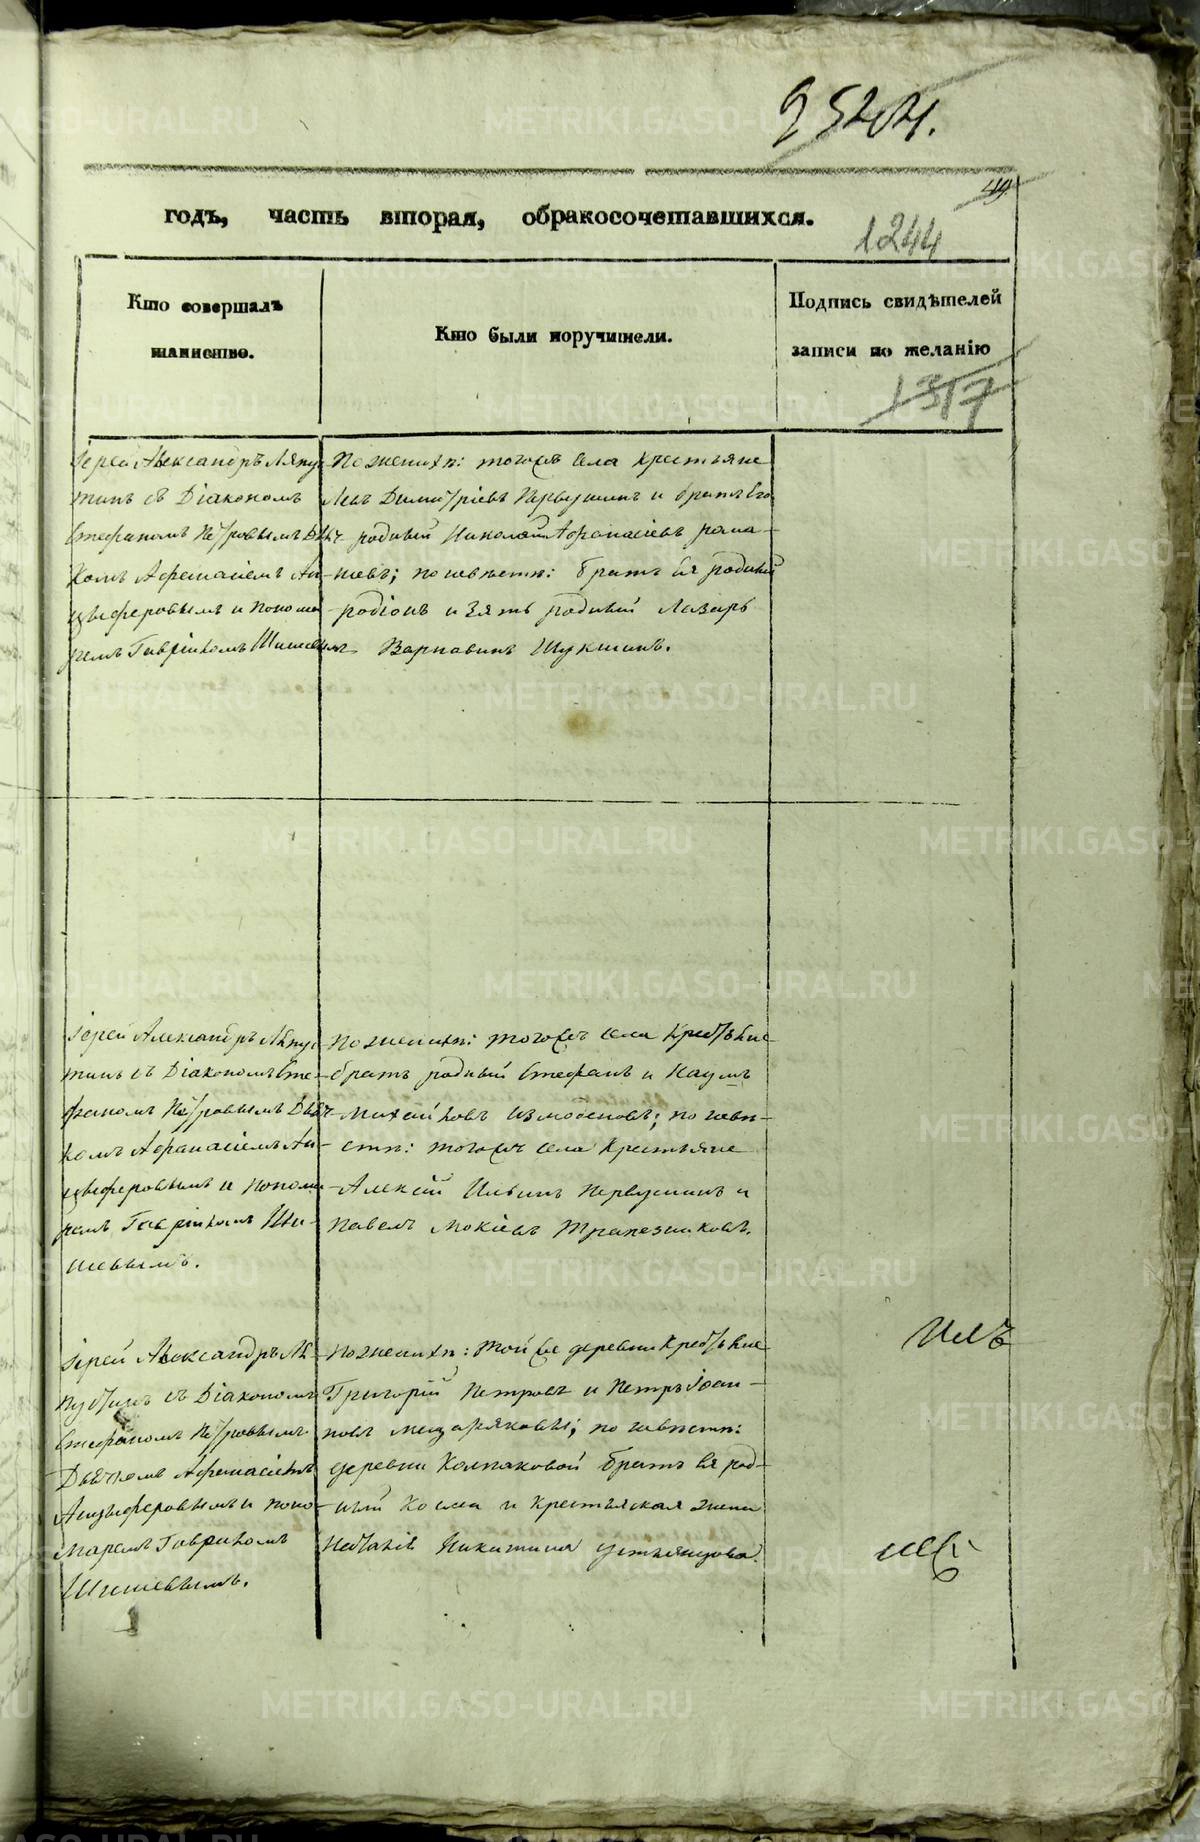 годъ, часть вторая, обракосочетавшихся.
1244
1317
Кто совершалъ
таинство.
Кто были поручители.
Подпись свидѣтелей
записи по желанію
Іерей Александръ Ляпу-
тинъ съ Діакономъ
Стефаномъ Петровымъ Дьяч-
комъ Афанасіемъ Ан-
цыферовымъ и понома-
ремъ Гавріиломъ Шишевымъ
По женихѣ: тогожъ села крестьяне
Левъ Димитріевъ Первушинъ и братъ его
родный Николай Афанасіевъ рома-
невъ; по невѣстѣ: братъ ея родный
родіонъ и зять родный Лазарь
Варнавинъ Щукинъ.
Іерей Александръ Ляпу-
тинъ съ Діакономъ Сте-
фаномъ Петровымъ Дьяч-
комъ Афанасіемъ Ан-
цыферовымъ и понома-
ремъ Гавріиломъ Ши-
шевымъ.
по женихѣ: тогожъ села Крестьяне
братъ родный Стефанъ и Наумъ
Измоденовъ; по невѣ-
стѣ: тогожъ села Крестьяне
Алексѣй Ильинъ Первушинъ и
Павелъ Мокіевъ Трапезниковъ.
Іерей Александръ Ля-
путинъ съ Діакономъ
Стефаномъ Петровымъ
Дьячкомъ Афанасіемъ
Анцыферовымъ и поно-
маремъ Гавріиломъ
Шишевымъ.
по женихѣ: той же деревни Крестьяне
Григорій Петровъ и Петръ Іоан-
новъ мещеряковы; по невѣстѣ:
деревни Колпаковой братъ ея род-
ный Косма и крестьянская жена
Наталія Никитина устьянцова.